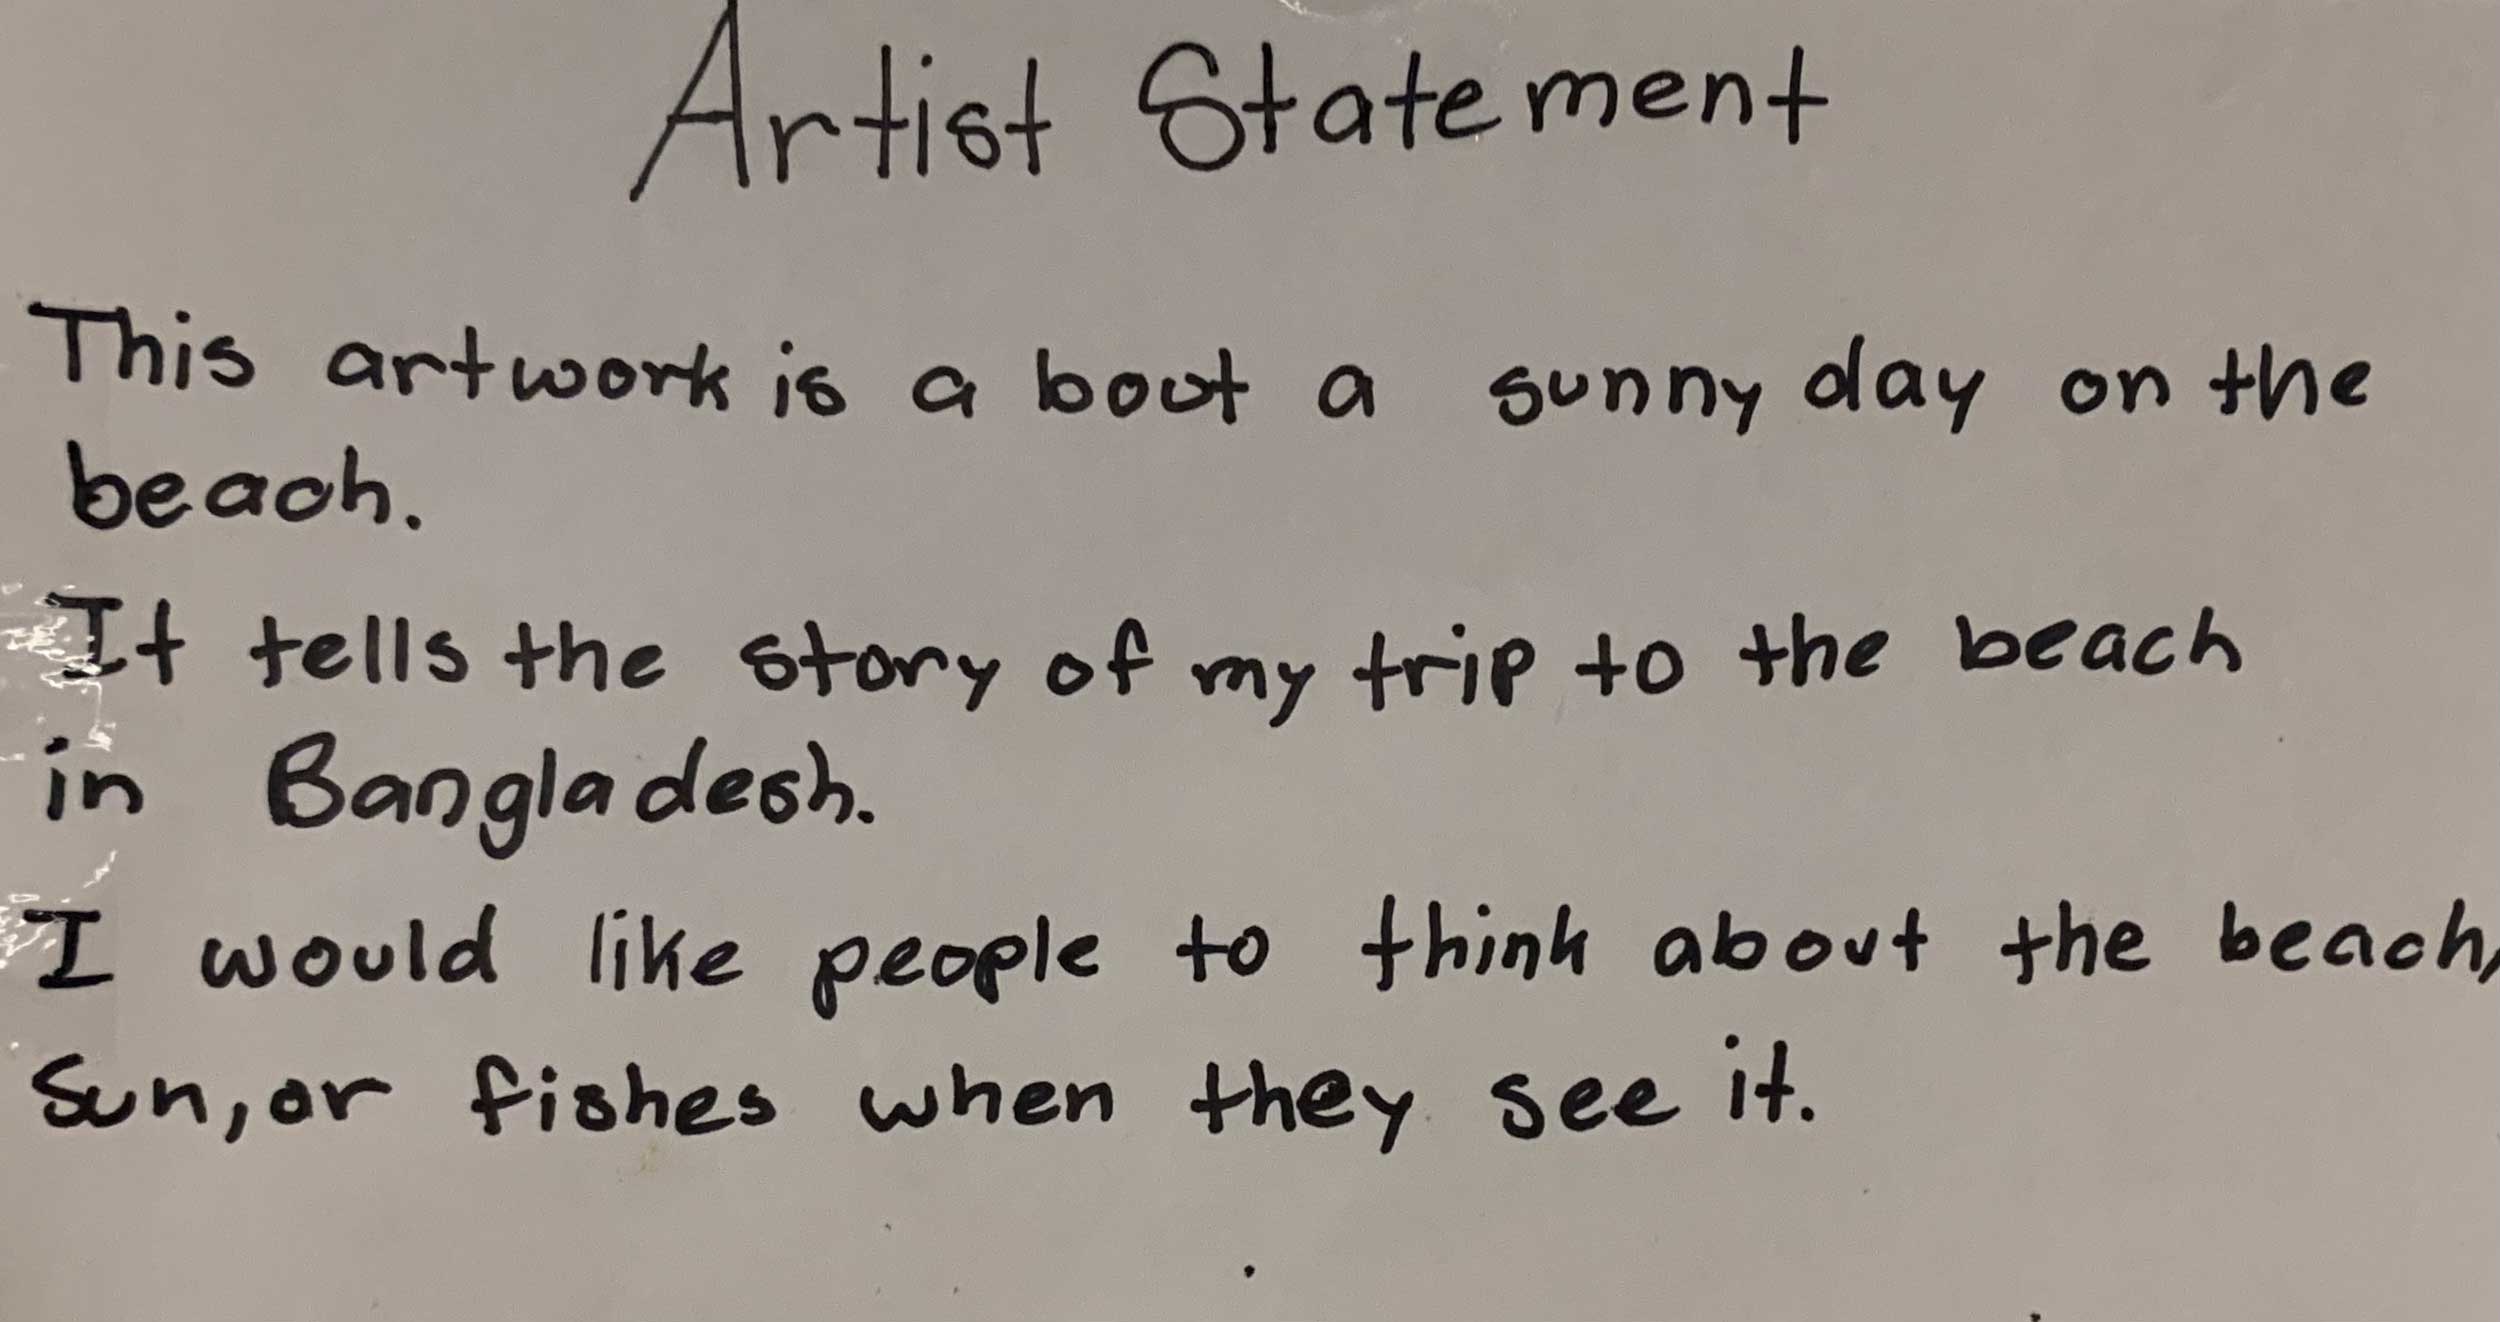 Artist Statement
This artwork is a bout a sunny day on the
beach.
It tells the story of my trip to the beach
in Bangladesh.
I would like people to think about the beach,
Sun, or fishes when they see it.